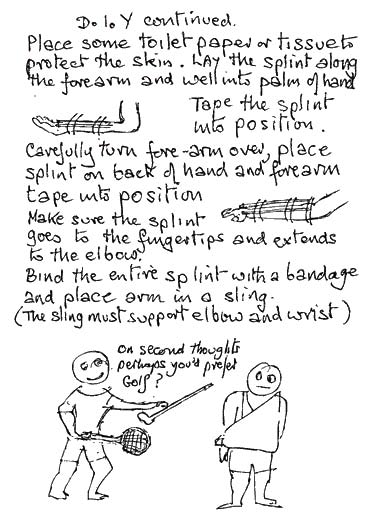 Do lo Y continued.
Place some toilet paper or tissue to
protect the skin. LAY the splint along
the forearm and well into palm of hand
Tape the splint
into position.
Carefully turn fore-arm over, place
splint on back of hand and forearm
tape into position
Make sure the splint
goes to the fingertips and extends
to the elbow.
Bind the entire splint with a bandage
and place arm in a sling.
(The sling must support elbow and wrist)
On second thoughts
perhaps you'd prefer
Golf?